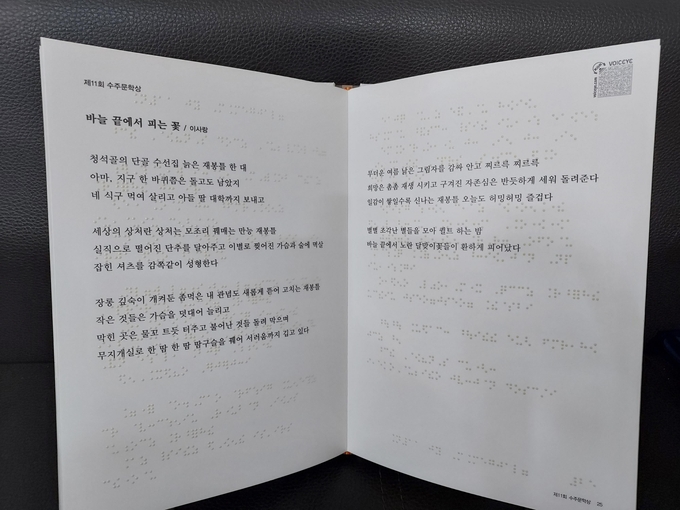 제11회 수주문학상
바늘 끝에서 피는 꽃 / 이사랑
청석골의 단골 수선집 늙은 재봉틀 한 대
아마, 지구 한 바퀴쯤은 돌고도 남았지
네 식구 먹여 살리고 아들 딸 대학까지 보내고
세상의 상처란 상처는 모조리 꿰매는 만능 재봉틀
실직으로 떨어진 단추를 달아주고 이별로 찢어진 가슴과 술에 멱살
잡힌 셔츠를 감쪽같이 성형한다
장롱 깊숙이 개켜둔 좀먹은 내 관념도 새롭게 뜯어 고치는 재봉틀
작은 것들은 가슴을 덧대어 늘리고
막힌 곳은 물꼬 트듯 터주고 불어난 것들 돌려 막으며
무지개실로 한 땀 한 땀 땀구슬을 꿰어 서러움까지 깁고 있다
VOICEYE
무더운 여름 낡은 그림자를 감싸 안고 찌르륵 찌르륵
희망은 촘촘 재생 시키고 구겨진 자존심은 반듯하게 세워 돌려준다
일감이 쌓일수록 신나는 재봉틀 오늘도 허밍허밍 즐겁다
별별 조각난 별들을 모아 퀼트 하는 밤
바늘 끝에서 노란 달맞이꽃들이 환하게 피어났다
제11회 수주문학상 25